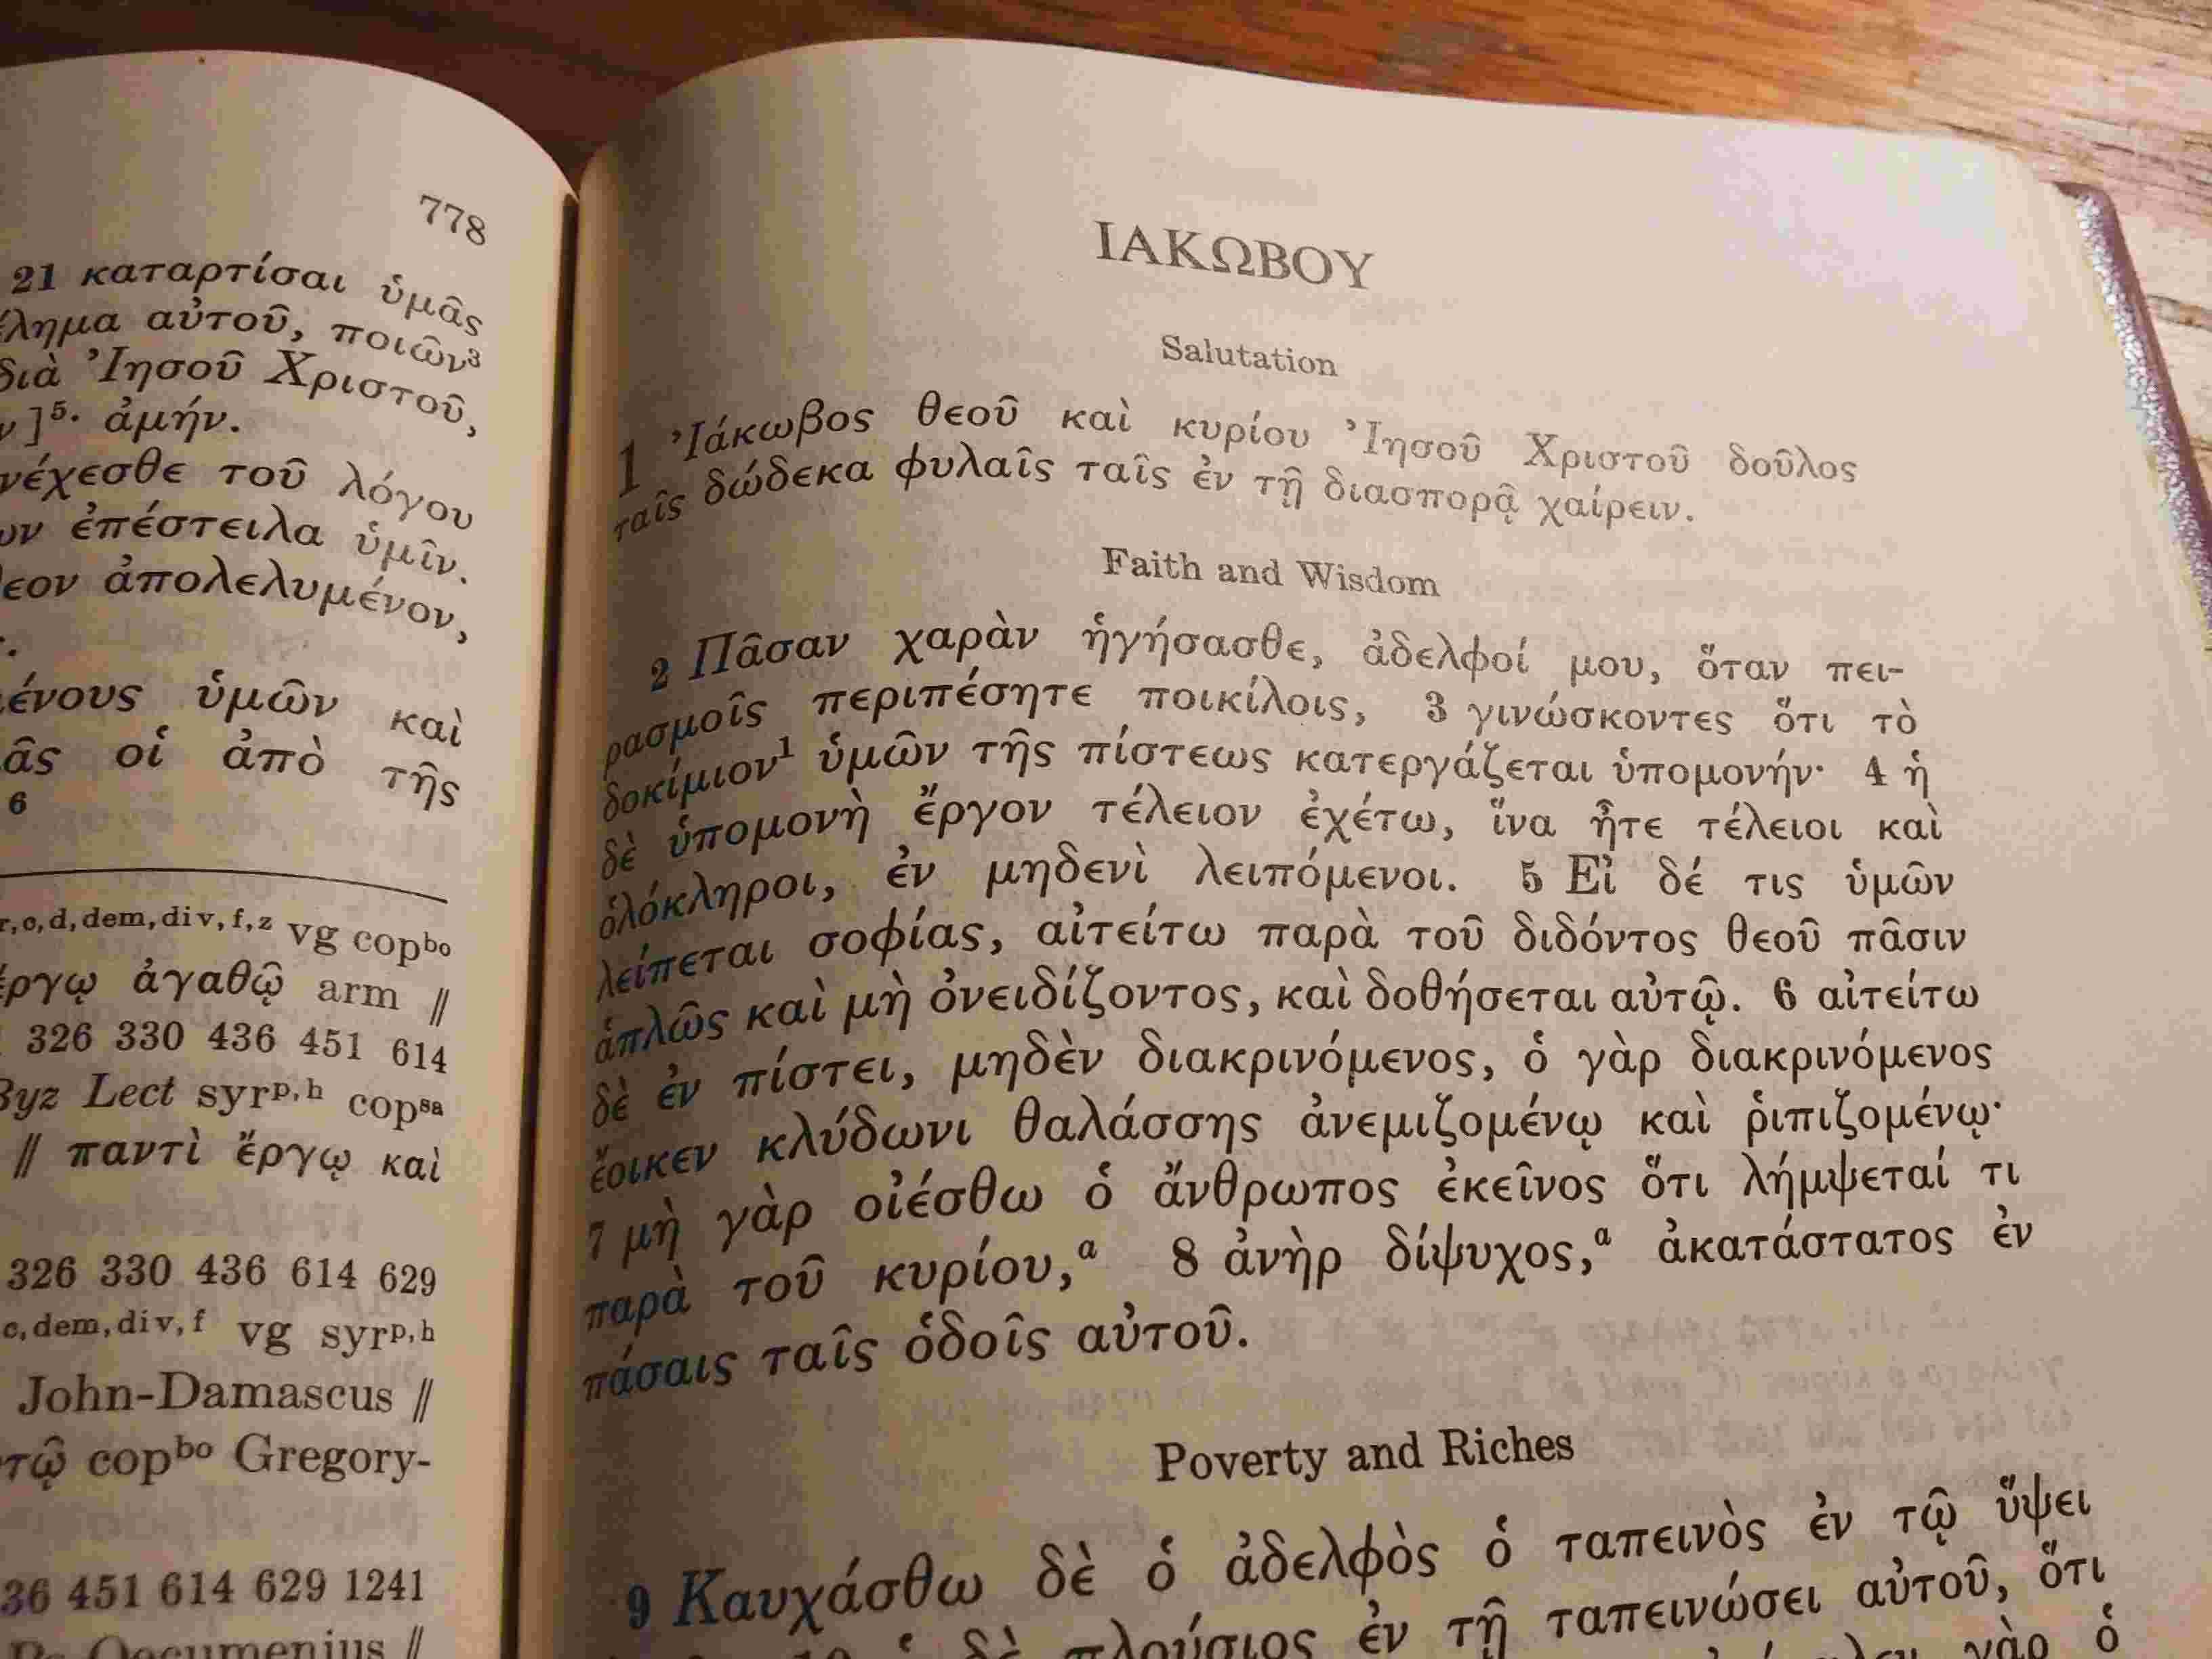 778
21 καταρτίσαι ὑμᾶς
αὐτοῦ, ποιῶν³
διὰ Ἰησοῦ Χριστοῦ,
]⁵· ἀμήν.
τοῦ λόγου
ἐπέστειλα ὑμῖν.
ἀπολελυμένον,
ὑμῶν καὶ
οἱ ἀπὸ τῆς
6
c,d,dem,div,f,z vg copᵇᵒ
ἀγαθῷ arm //
326 330 436 451 614
Byz Lect syrᵖ,ʰ copˢᵃ
// παντὶ ἔργῳ καὶ
326 330 436 614 629
c,dem,div,f vg syrᵖ,ʰ
John-Damascus //
copᵇᵒ Gregory-
451 614 629 1241
Oecumenius //
ΙΑΚΩΒΟΥ
Salutation
1 Ἰάκωβος θεοῦ καὶ κυρίου Ἰησοῦ Χριστοῦ δοῦλος
ταῖς δώδεκα φυλαῖς ταῖς ἐν τῇ διασπορᾷ χαίρειν.
Faith and Wisdom
2 Πᾶσαν χαρὰν ἡγήσασθε, ἀδελφοί μου, ὅταν πει-
ρασμοῖς περιπέσητε ποικίλοις, 3 γινώσκοντες ὅτι τὸ
δοκίμιον¹ ὑμῶν τῆς πίστεως κατεργάζεται ὑπομονήν· 4 ἡ
δὲ ὑπομονὴ ἔργον τέλειον ἐχέτω, ἵνα ἦτε τέλειοι καὶ
ὁλόκληροι, ἐν μηδενὶ λειπόμενοι. 5 Εἰ δέ τις ὑμῶν
λείπεται σοφίας, αἰτείτω παρὰ τοῦ διδόντος θεοῦ πᾶσιν
ἁπλῶς καὶ μὴ ὀνειδίζοντος, καὶ δοθήσεται αὐτῷ. 6 αἰτείτω
δὲ ἐν πίστει, μηδὲν διακρινόμενος, ὁ γὰρ διακρινόμενος
ἔοικεν κλύδωνι θαλάσσης ἀνεμιζομένῳ καὶ ῥιπιζομένῳ·
7 μὴ γὰρ οἰέσθω ὁ ἄνθρωπος ἐκεῖνος ὅτι λήμψεταί τι
παρὰ τοῦ κυρίου,ᵃ 8 ἀνὴρ δίψυχος,ᵃ ἀκατάστατος ἐν
πάσαις ταῖς ὁδοῖς αὐτοῦ.
Poverty and Riches
9 Καυχάσθω δὲ ὁ ἀδελφὸς ὁ ταπεινὸς ἐν τῷ ὕψει
πλούσιος ἐν τῇ ταπεινώσει αὐτοῦ, ὅτι
γὰρ ὁ